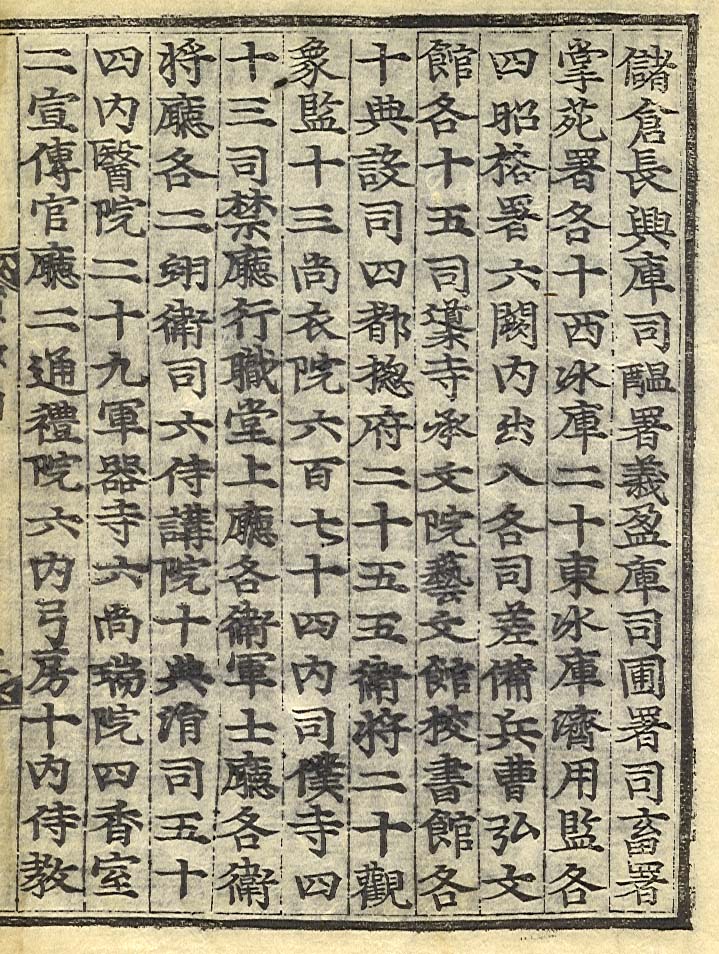 儲倉長興庫司醞署義盈庫司圃署司畜署
掌苑署各十西氷庫二十東氷庫濟用監各
四昭格署六闕内出入各司差備兵曹弘文
館各十五司䆃寺承文院藝文館校書館各
十典設司四都摠府二十五五衛將二十觀
象監十三尚衣院六百七十四内司僕寺四
十三司禁廳行職堂上廳各衛軍士廳各衛
將廳各二翊衛司六侍講院十典涓司五十
四内醫院二十九軍器寺六尚瑞院四香室
二宣傳官廳二通禮院六内弓房十内侍教